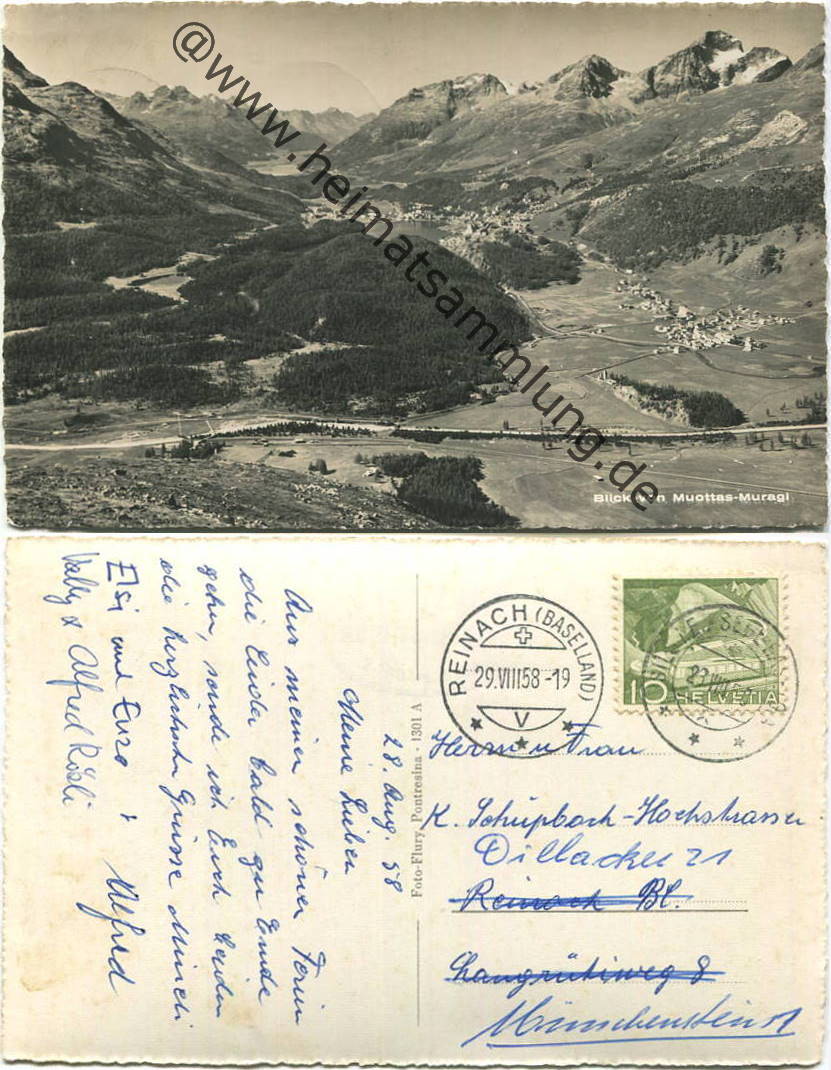 @www.heimatsammlung.de
Blick von Muottas-Muragl
28. Aug. 58
Meine Lieben
Aus meinen schönen Ferien
die leider bald zu Ende
gehn, sende ich Euch beiden
die herzlichsten Grüsse
Elsi und Eure
Alfred
Wally & Alfred Rösli
Foto-Flury, Pontresina · 1301 A
REINACH (BASELLAND)
29.VIII58-19
V
10 HELVETIA
Herrn u Frau
K. Schüpbach-Hochstrasser
Dillacker 21
Reinach BL.
Langrütiweg 8
Münchenstein